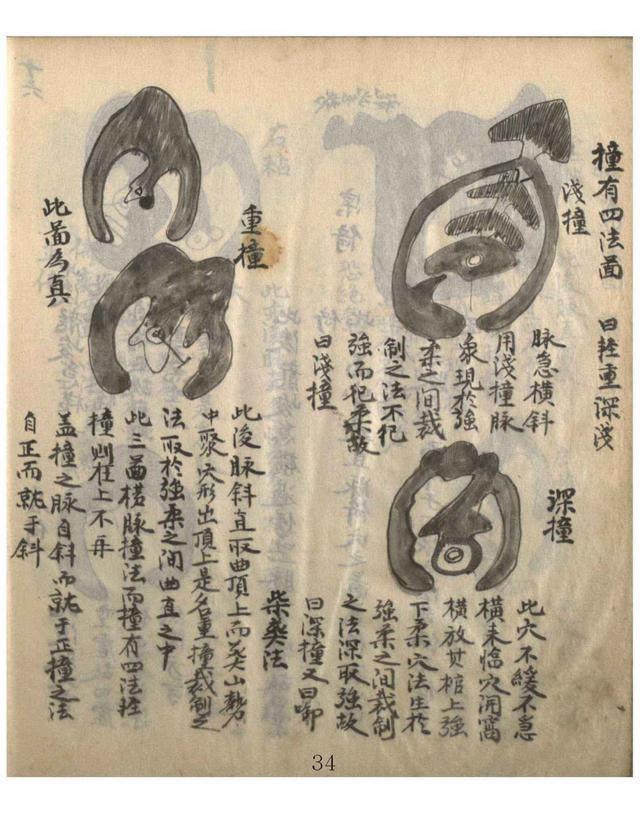 撞有四法啚　曰輕重深淺
淺撞
脉急橫斜
用淺撞脉
象現於強
柔之间裁
制之法不犯
強而犯柔故
曰淺撞
深撞
此穴不緩不急
橫未临穴開窩
橫放其棺上強
下柔穴法生於
強柔之间裁制
之法深取強故
曰深撞又曰
重撞
此啚為真
柴葬法
此後脉斜直取曲頂上而葬山勢
中聚穴形出頂上是名重撞裁制之
法取於強柔之间曲直之中
此三啚橫脉撞法而撞有四法
撞则在上不再
盖撞之脉自斜而就于正撞之法
自正而就于斜
34